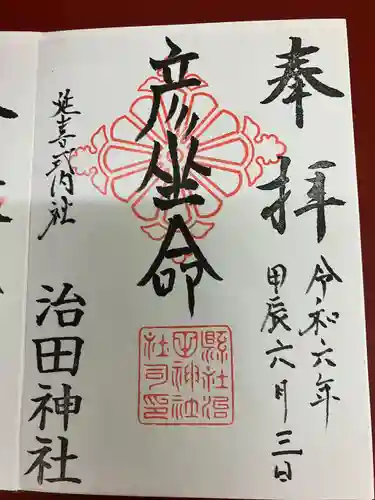 奉拝
令和六年
甲辰六月三日
彦坐命
縣社治
田神社
社司印
延喜式内社
治田神社